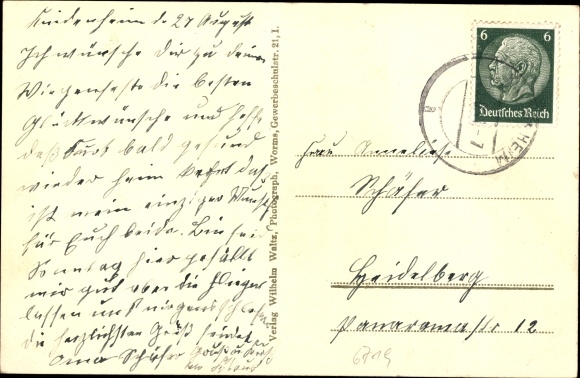 Kindenheim de 27 August
Ich wünsche Dir zu deinem
Wiegenfeste die besten
Glückwünsche und hoffe
daß Kurt bald gesund
wieder heim kehrt das
ist mein einziger Wunsch
für Euch beide. Bin seit
Sonntag hier gefällt
mir gut aber die Flieger
lassen uns nirgends schlafen
die herzlichsten Grüße sendet
Oma Schäfer Gruß u Kuß
Verlag Wilhelm Waltz, Photograph, Worms, Gewerbeschulstr. 21, I.
6 6
Deutsches Reich
HEIM
Frau Anneliese
Schäfer
Heidelberg
Panoramastr 12
6719